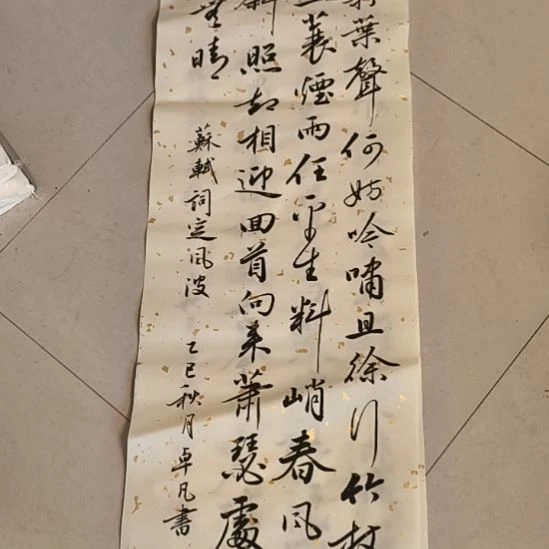 葉聲何妨吟嘯且徐行竹杖
蓑煙雨任平生料峭春風
斜照却相迎回首向來蕭瑟處
無晴
蘇軾詞定風波
乙巳秋月卓凡書